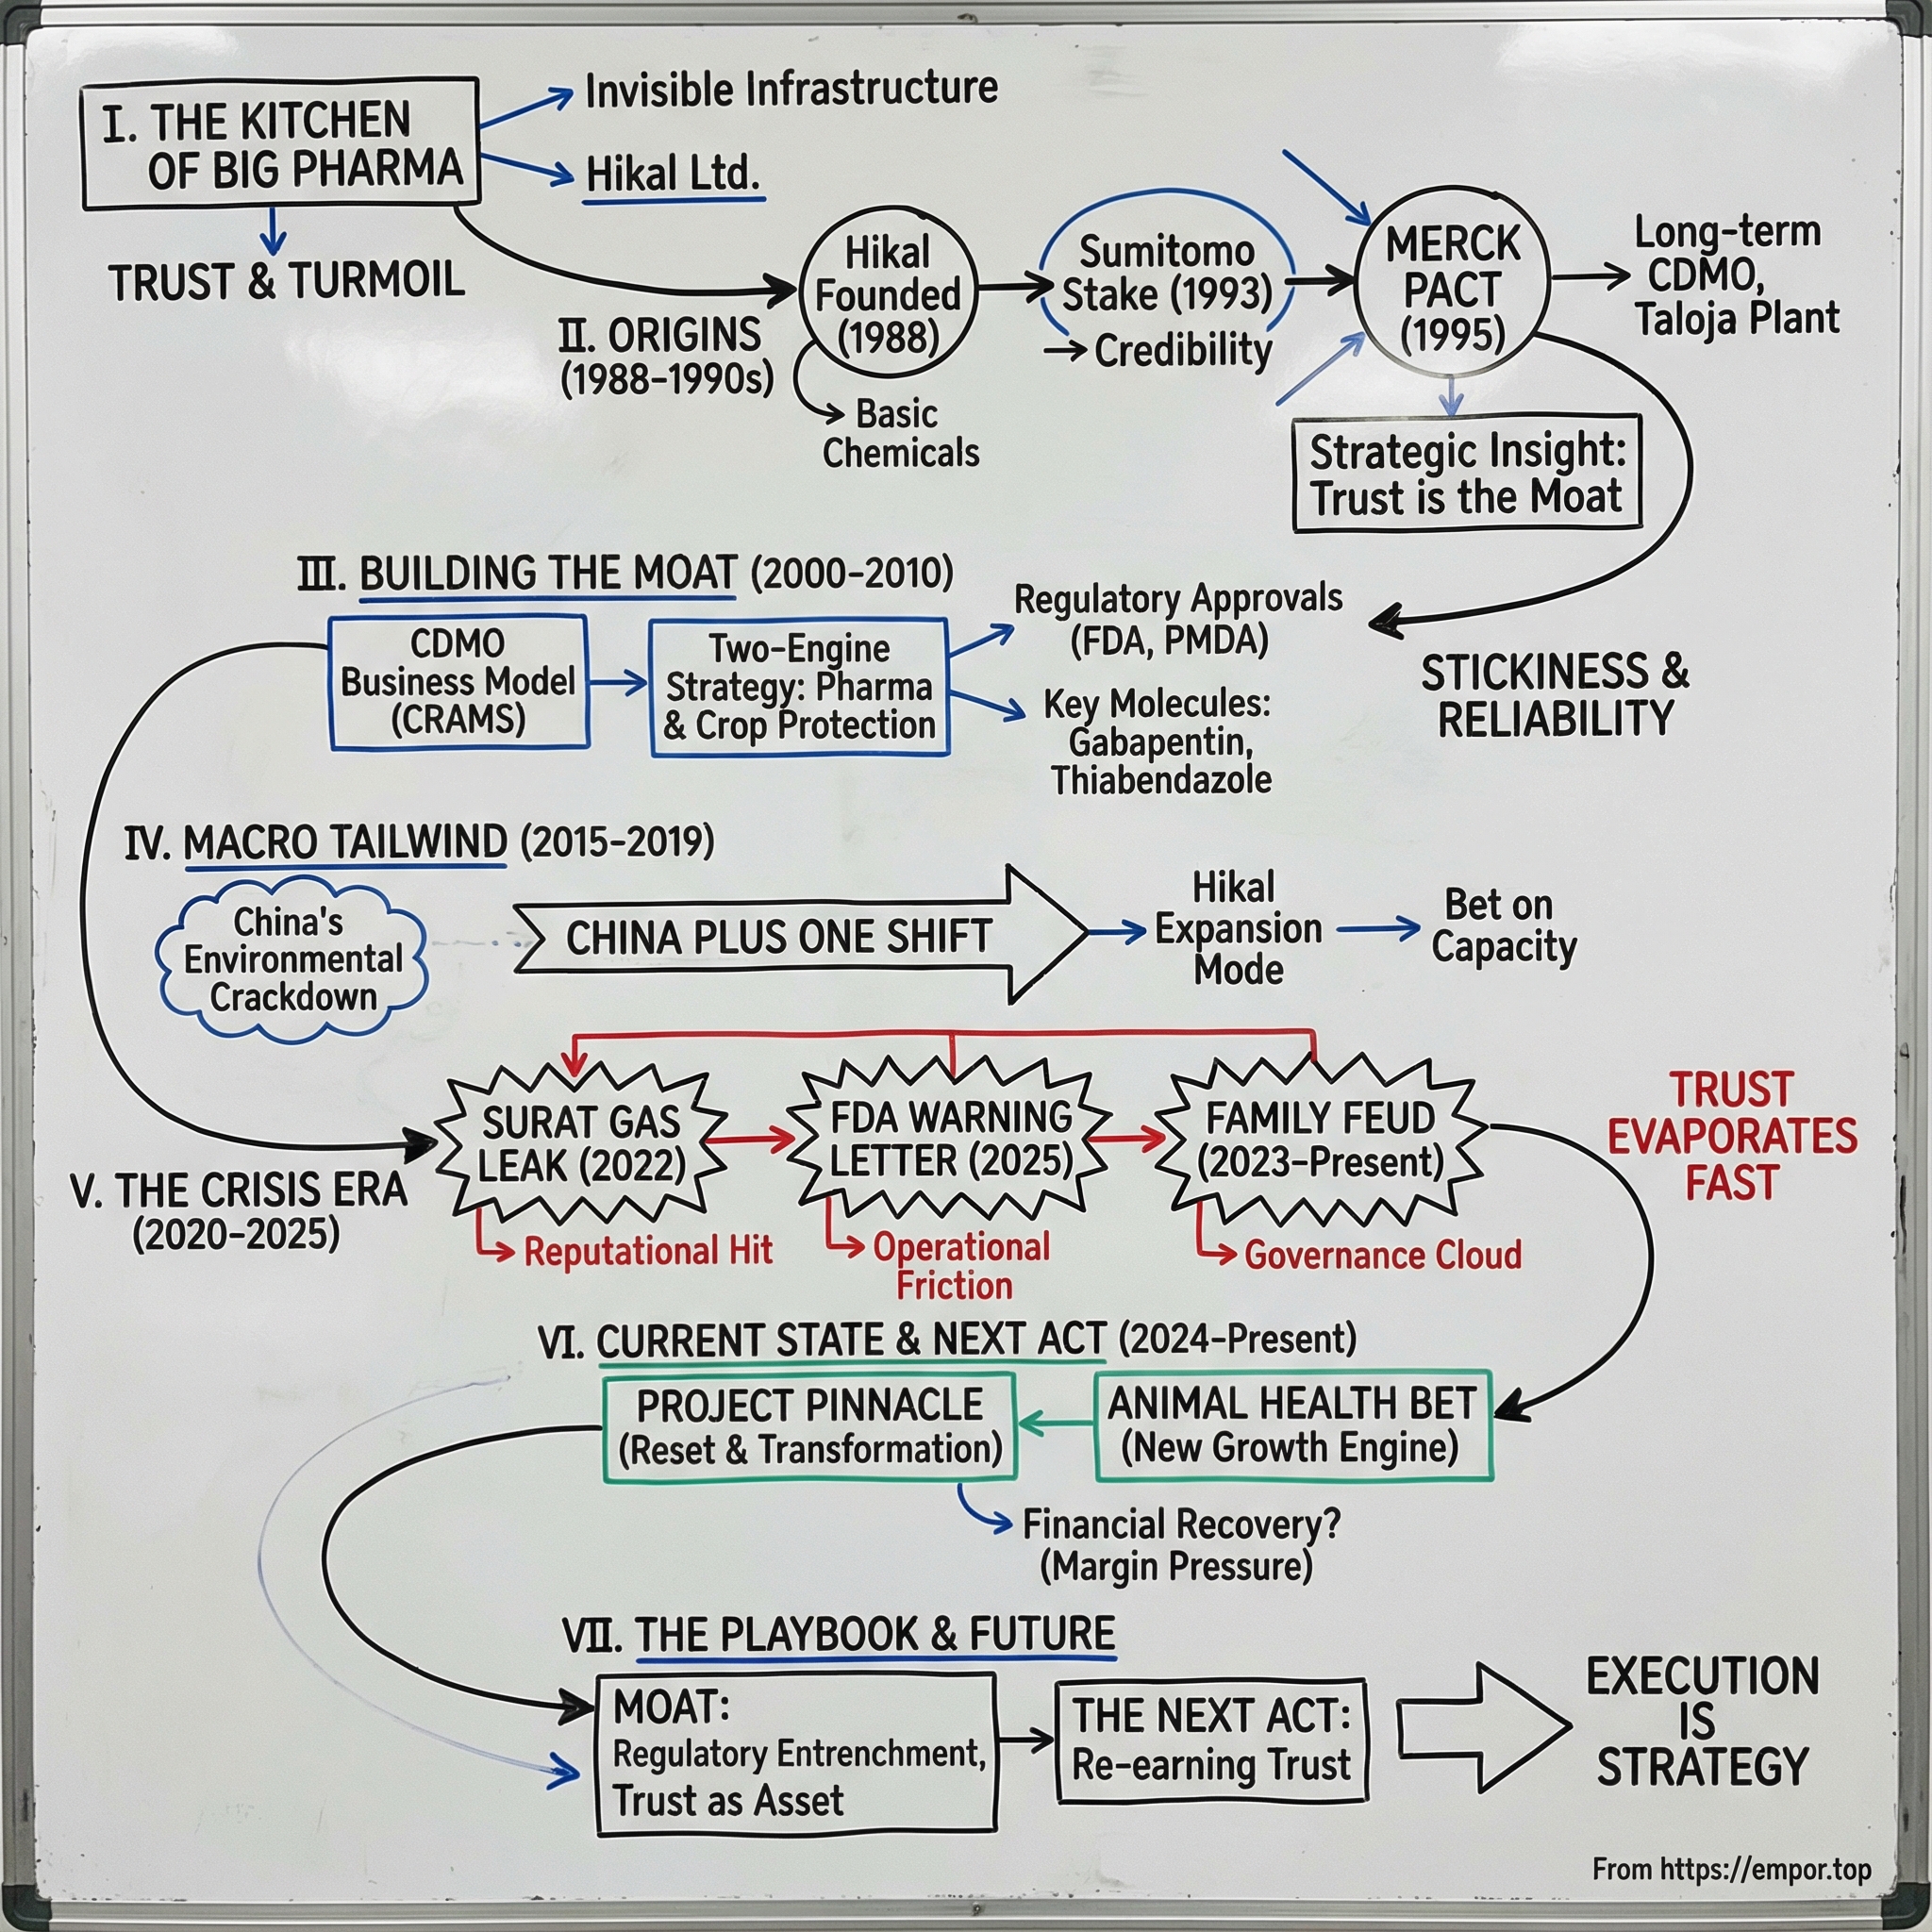 I. THE KITCHEN
OF BIG PHARMA
Invisible Infrastructure
Hikal Ltd.
TRUST & TURMOIL
II. ORIGINS
(1988-1990s)
Hikal
Founded
(1988)
Basic
Chemicals
Sumitomo
Stake (1993)
Credibility
MERCK
PACT
(1995)
Long-term
CDMO,
Taloja Plant
Strategic Insight:
Trust is the Moat
STICKINESS &
RELIABILITY
III. BUILDING THE MOAT (2000-2010)
CDMO
Business Model
(CRAMS)
Two-Engine
Strategy: Pharma
& Crop Protection
Regulatory Approvals
(FDA, PMDA)
Key Molecules:
Gabapentin,
Thiabendazole
IV. MACRO TAILWIND (2015-2019)
China's
Environmental
Crackdown
CHINA PLUS ONE SHIFT
Hikal
Expansion
Mode
Bet on
Capacity
V. THE CRISIS ERA
(2020-2025)
SURAT GAS
LEAK (2022)
Reputational Hit
FDA WARNING
LETTER (2025)
Operational
Friction
FAMILY FEUD
(2023-Present)
Governance Cloud
TRUST
EVAPORATES
FAST
VI. CURRENT STATE & NEXT ACT (2024-Present)
PROJECT PINNACLE
(Reset & Transformation)
ANIMAL HEALTH BET
(New Growth Engine)
Financial Recovery?
(Margin Pressure)
VII. THE PLAYBOOK & FUTURE
MOAT:
Regulatory Entrenchment,
Trust as Asset
THE NEXT ACT:
Re-earning Trust
EXECUTION
IS
STRATEGY
From https://empor.top